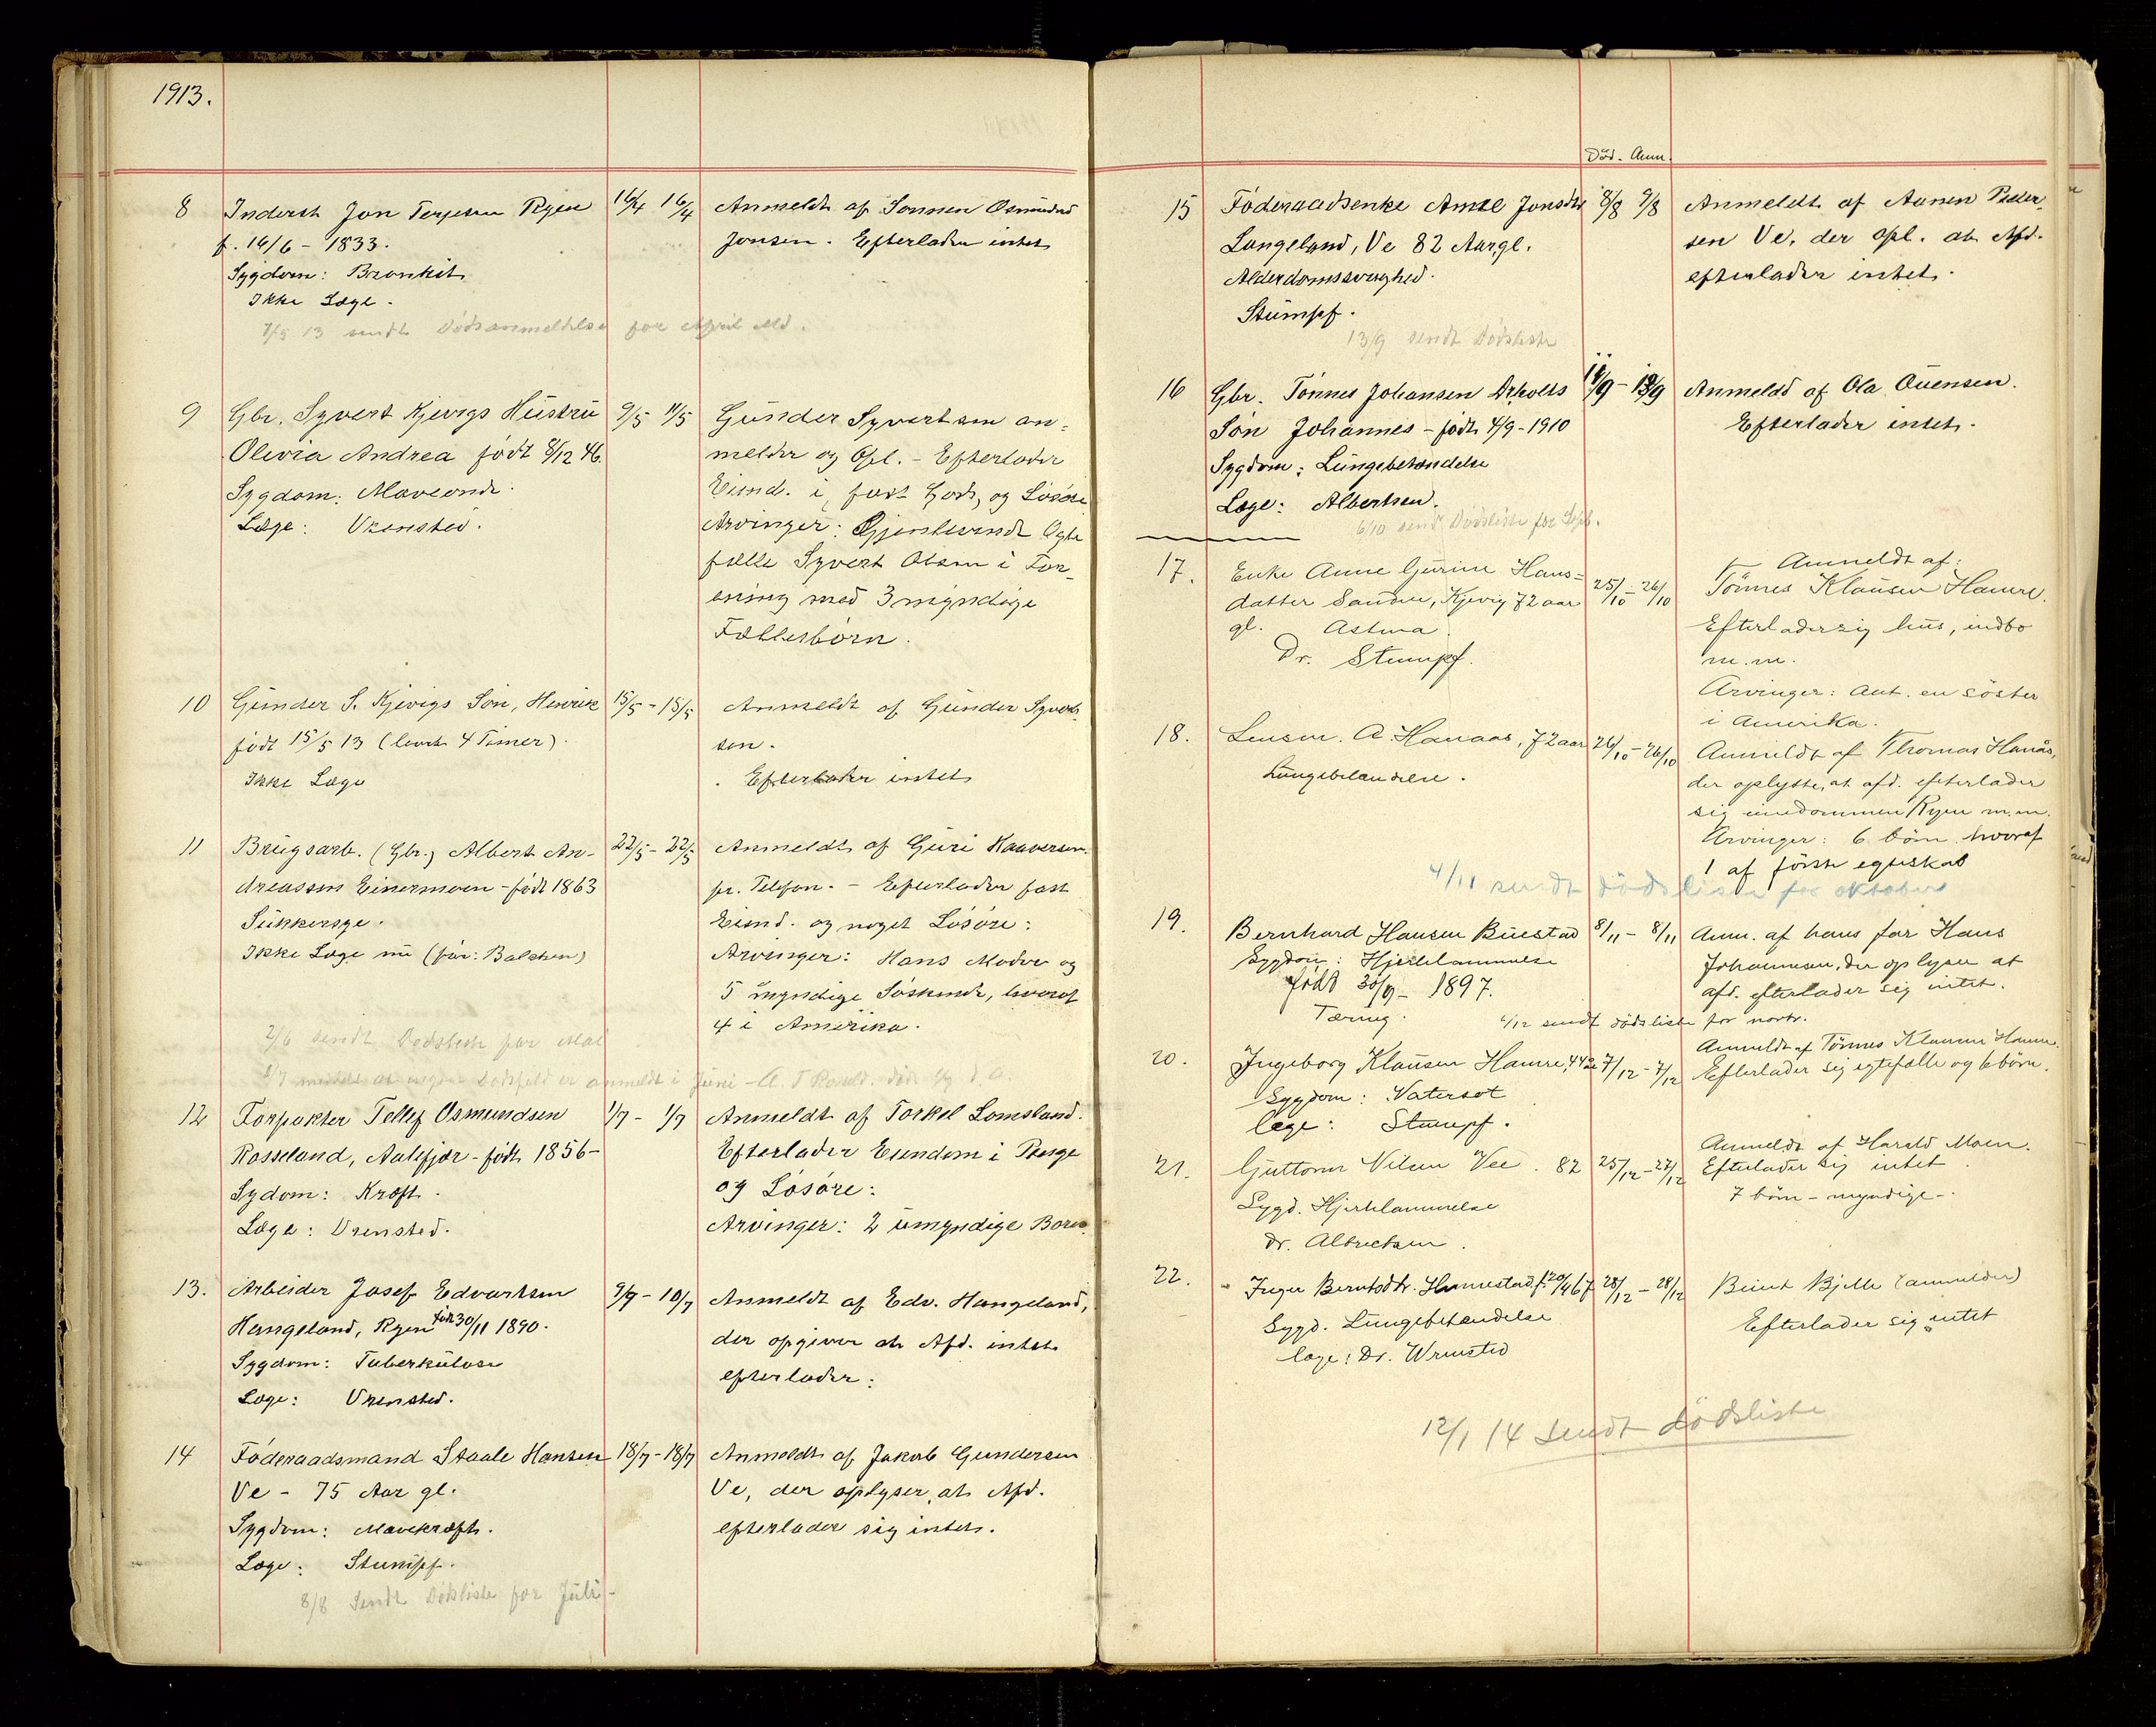 1913.
8 Inderst Jon Terjesen Ryen 16/4 16/4 Anmeldt af Sønnen Osmund
f. 16/6 - 1833. Jonsen. Efterlader intet
Sygdom: Bronkit
Ikke Læge.
7/5 13 sendt Dødsanmeldelse for April Md.
9 Gbr. Syvert Kjevigs Hustru 9/5 11/5 Gunder Syvertsen an-
Olevia Andrea født 8/12 46. melder og Opl. - Efterlader
Sygdom: Maveonde. Eiend. i fast Gods, og Løsøre
Læge: Vrensted. Arvinger: Gjenlevende Ægte
fælle Syvert Olsen i For-
ening med 3 myndige
Fællesbørn.
10 Gunder S. Kjevigs Søn, Henrik 15/5 - 15/5 Anmeldt af Gunder Syvert-
født 15/5 13 (levet 4 Timer). sen.
Ikke Læge Efterlader intet
11 Brugsarb. (Gbr.) Albert An- 22/5 - 22/5 Anmeldt af Guri Kaaversen.
dreassen Einermoen - født 1863 pr. Telefon. - Efterlader fast
Sukkersyge. Eiend. og noget Løsøre:
Ikke Læge nu (før: Balchen) Arvinger: Hans Moder og
5 myndige Søskende, hvoraf
4 i Amerika.
2/6 sendt Dødsliste for Mai
anmeldt i Juni
12 Forpakter Tellef Osmundsen 1/7 - 1/7 Anmeldt af Torkel Lomsland.
Rosseland, Aalefjær - født 1856 - Efterlader Eiendom i Penge
Sydom: Kræft. og Løsøre:
Læge: Vrensted. Arvinger: 2 umyndige Børn.
13. Arbeider Josef Edvartsen 9/7 - 10/7 Anmeldt af Edv. Hangeland,
Hangeland, Ryen født 30/11 1890. der opgiver at Afd. intet
Sygdom: Tuberkulose efterlader:
Læge: Vrensted.
14 Føderaadsmand Staale Hansen 18/7 - 18/7 Anmeldt af Jakob Gundersen
Ve - 75 Aar gl. Ve, der oplyser, at Afd.
Sygdom: Mavekræft. efterlader sig intet.
Læge: Stumpf.
8/8 Sendt Dødsliste for Juli -
Død. - Anm.
15 Føderaadsenke Amte Jonsdtr 8/8 9/8 Anmeldt af Aanen Peder-
Langeland, Ve 82 Aar gl. sen Ve, der opl. at Afd.
Alderdomssvaghed. efterlader intet.
Stumpf.
13/9 sendt Dødsliste
16 Gbr. Tønnes Johansen Drivolls /9 - /9 Anmeldt af Ola Ouensen.
Søn Johannes - født 4/9 - 1910 Efterlader intet.
Sygdom: Lungebetændelse
Læge: Albertsen.
6/10 sendt Dødsliste for Sept.
17. Enke Anne Gurine Hans= 25/10 - 26/10 Anmeldt af:
datter Sanden, Kjevig 72 aar Tönnes Klausen Hamre.
gl. Astma. Efterlader sig hus, indbo
Dr. Stumpf. m.m.
Arvinger: Ant. en söster
i Amerika.
18. Lensm. A. Hanaas, 72 aar 26/10 - 26/10 Anmeldt af Thomas Hanås,
Lungebetændelse. der oplyste, at afd. efterlader
sig eiendommen Ryen m.m.
Arvinger: 6 börn hvoraf
1 af förste egteskab
4/11 sendt dödsliste for oktober
19. Bernhard Hansen Buestad 8/11 - 8/11 Anm. af hans far Hans
Sygdom: Hjertelammelse Johannesen, der oplyser at
født 30/9 - 1897. afd. efterlader sig intet.
Tæring.
4/12 sendt dödsliste for novbr.
20. Ingeborg Klausen Hamre, 44 år 7/12 - 7/12 Anmeldt af Tönnes Klausen Hamre.
Sygdom: Vatersot Efterlader sig egtefælle og 6 börn.
læge: Stumpf.
21. Guttorm Nilsen Vee. 82 25/12 - 27/12 Anmeldt af Harald Moen.
Sygd. Hjertelammelse Efterlader sig intet
Dr. Albretsen. 7 börn - myndige -.
22. Inger Berntsdtr. Hannestad f. 20/4 67 28/12 - 28/12 Bernt Bjelle (anmelder)
Sygd. Lungebetændelse Efterlader sig intet
læge: Dr. Wrensted
12/1 14 sendt dödsliste